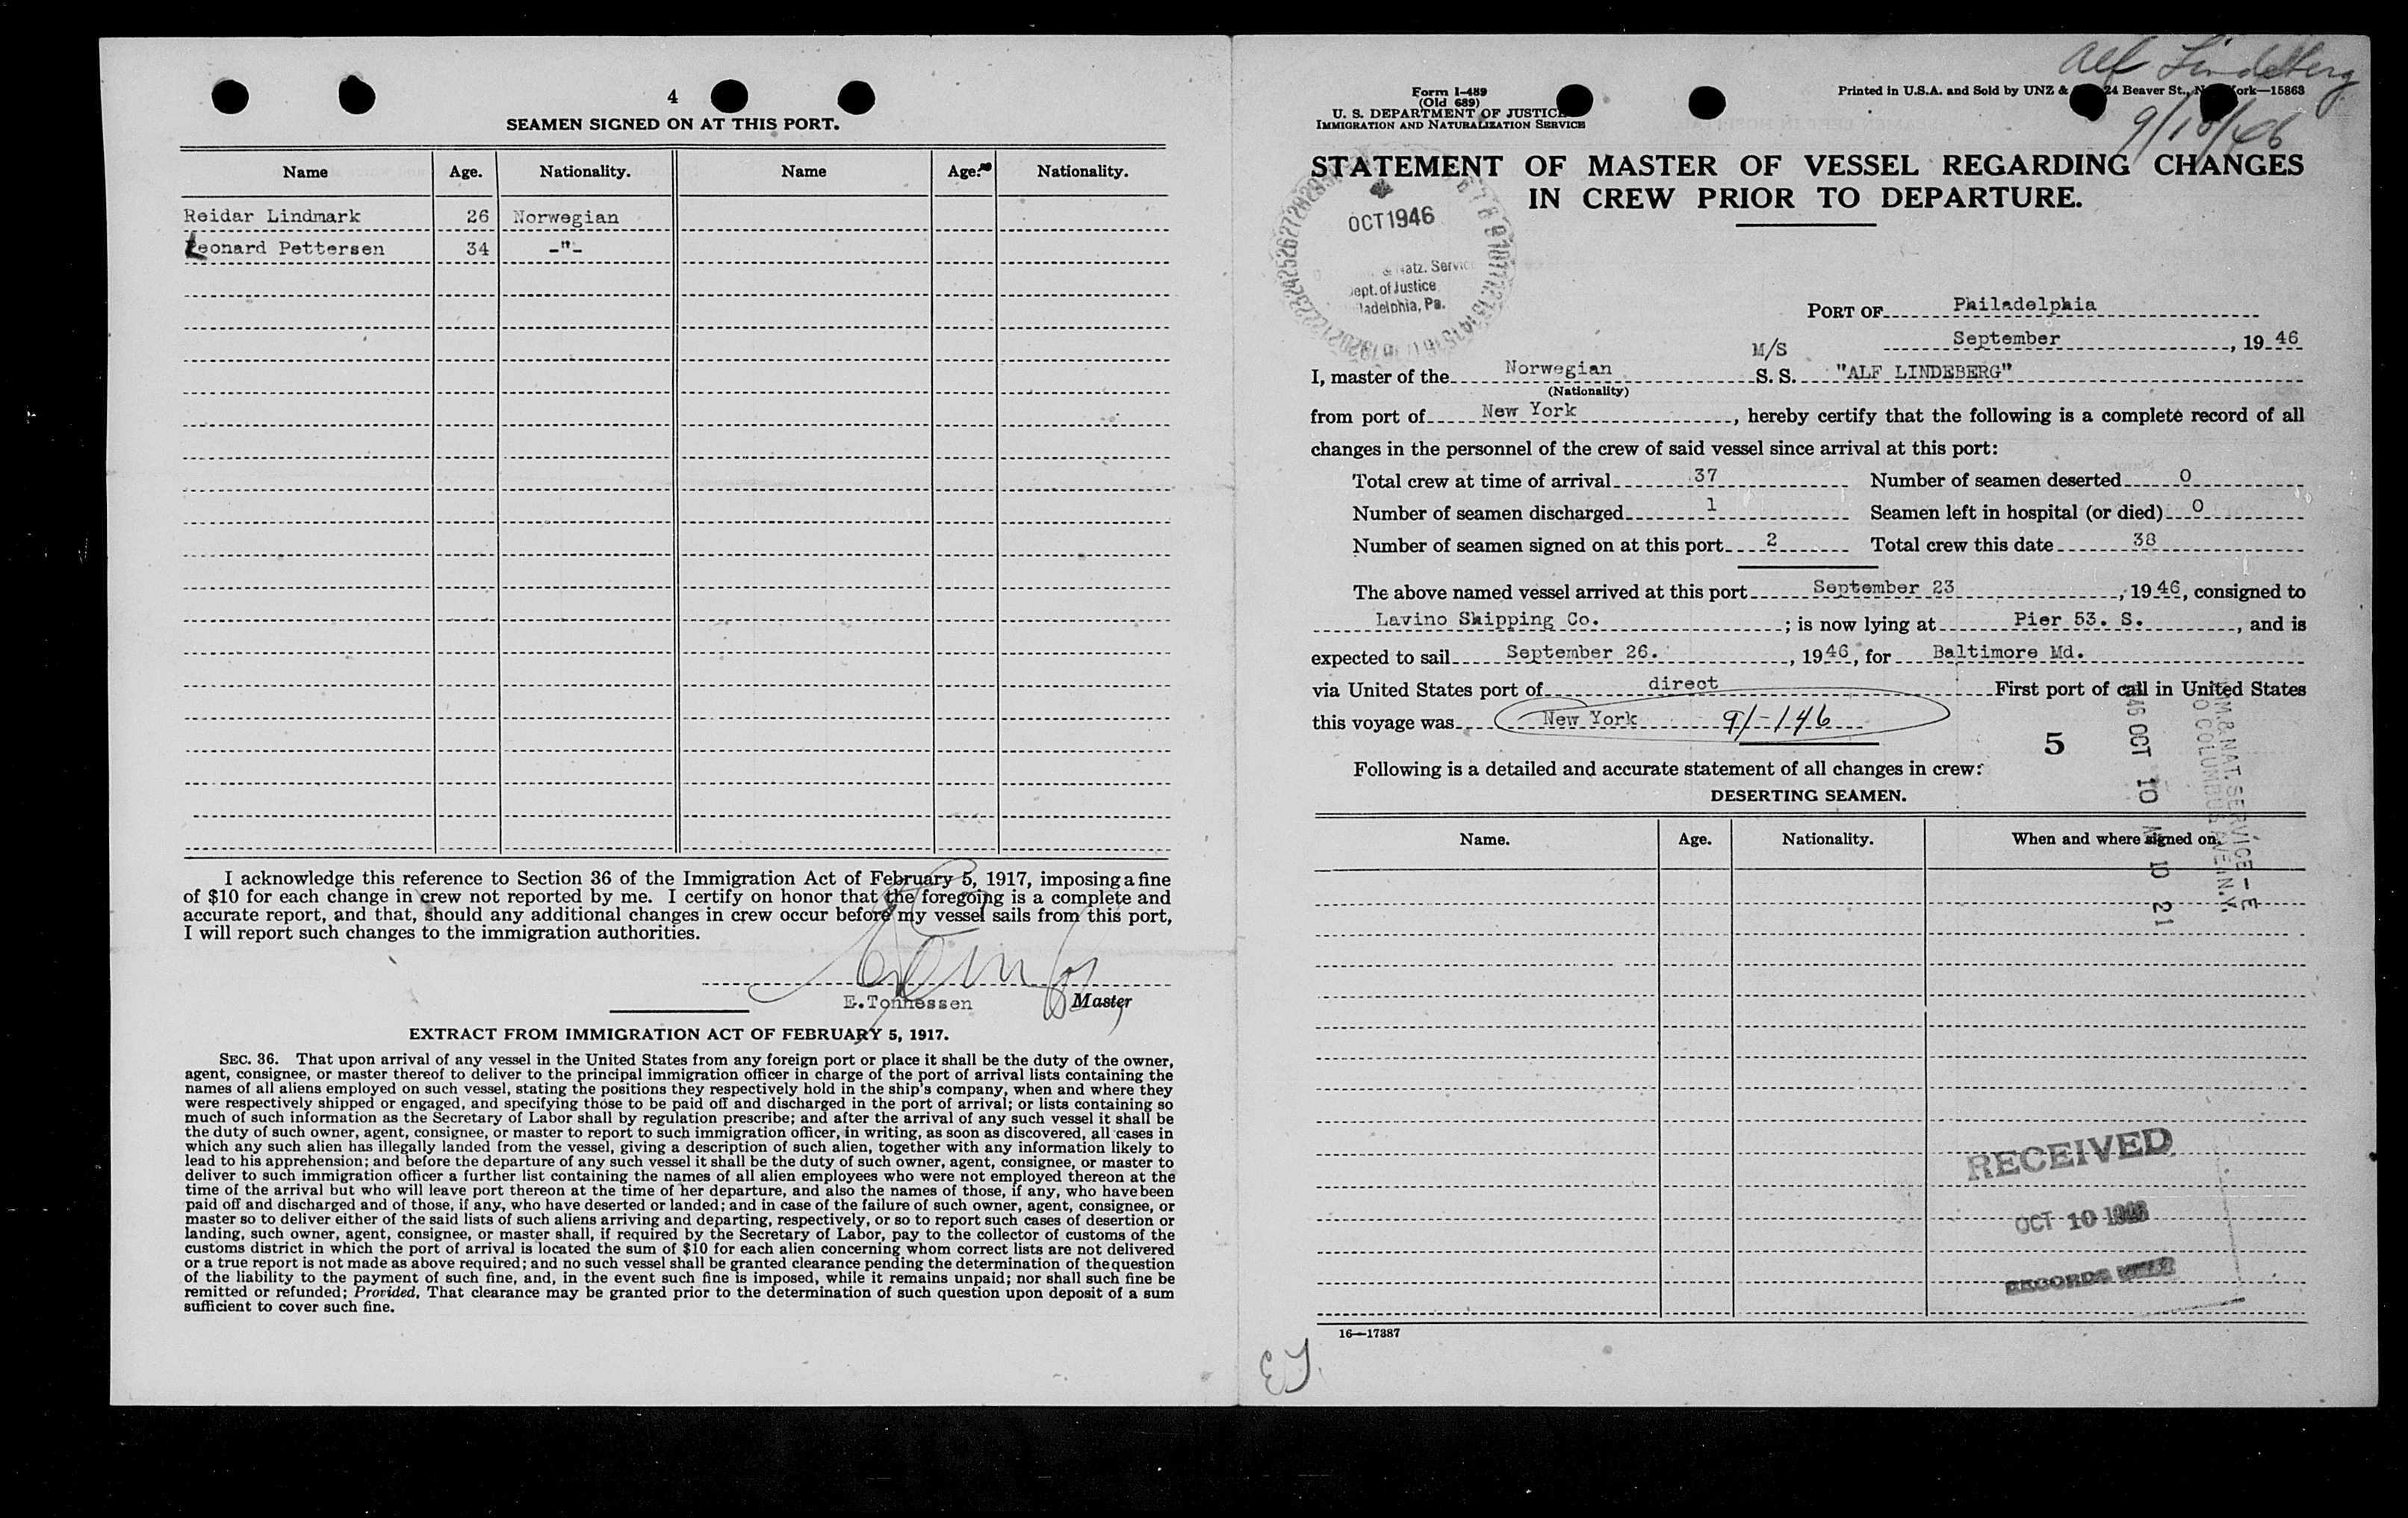 4
SEAMEN SIGNED ON AT THIS PORT.
Name Age. Nationality. Name Age. Nationality.
Reidar Lindmark 26 Norwegian
Leonard Pettersen 34 -"-
I acknowledge this reference to Section 36 of the Immigration Act of February 5, 1917, imposing a fine
of $10 for each change in crew not reported by me. I certify on honor that the foregoing is a complete and
accurate report, and that, should any additional changes in crew occur before my vessel sails from this port,
I will report such changes to the immigration authorities.
E.Tonnessen Master
EXTRACT FROM IMMIGRATION ACT OF FEBRUARY 5, 1917.
SEC. 36. That upon arrival of any vessel in the United States from any foreign port or place it shall be the duty of the owner,
agent, consignee, or master thereof to deliver to the principal immigration officer in charge of the port of arrival lists containing the
names of all aliens employed on such vessel, stating the positions they respectively hold in the ship's company, when and where they
were respectively shipped or engaged, and specifying those to be paid off and discharged in the port of arrival; or lists containing so
much of such information as the Secretary of Labor shall by regulation prescribe; and after the arrival of any such vessel it shall be
the duty of such owner, agent, consignee, or master to report to such immigration officer, in writing, as soon as discovered, all cases in
which any such alien has illegally landed from the vessel, giving a description of such alien, together with any information likely to
lead to his apprehension; and before the departure of any such vessel it shall be the duty of such owner, agent, consignee, or master to
deliver to such immigration officer a further list containing the names of all alien employees who were not employed thereon at the
time of the arrival but who will leave port thereon at the time of her departure, and also the names of those, if any, who have been
paid off and discharged and of those, if any, who have deserted or landed; and in case of the failure of such owner, agent, consignee, or
master so to deliver either of the said lists of such aliens arriving and departing, respectively, or so to report such cases of desertion or
landing, such owner, agent, consignee, or master shall, if required by the Secretary of Labor, pay to the collector of customs of the
customs district in which the port of arrival is located the sum of $10 for each alien concerning whom correct lists are not delivered
or a true report is not made as above required; and no such vessel shall be granted clearance pending the determination of the question
of the liability to the payment of such fine, and, in the event such fine is imposed, while it remains unpaid; nor shall such fine be
remitted or refunded; Provided, That clearance may be granted prior to the determination of such question upon deposit of a sum
sufficient to cover such fine.
Alf Lindeberg
Form I-489
(Old 689)
U. S. DEPARTMENT OF JUSTICE
IMMIGRATION AND NATURALIZATION SERVICE
Printed in U.S.A. and Sold by UNZ & 24 Beaver St., ork—15863
STATEMENT OF MASTER OF VESSEL REGARDING CHANGES
IN CREW PRIOR TO DEPARTURE.
OCT 1946
& Natz. Service
Dept. of Justice
ladelphia, Pa.
PORT OF Philadelphia
September , 19 46
M/S
I, master of the Norwegian S. S. "ALF LINDEBERG"
(Nationality)
from port of New York , hereby certify that the following is a complete record of all
changes in the personnel of the crew of said vessel since arrival at this port:
Total crew at time of arrival 37 Number of seamen deserted 0
Number of seamen discharged 1 Seamen left in hospital (or died) 0
Number of seamen signed on at this port 2 Total crew this date 38
The above named vessel arrived at this port September 23 , 19 46, consigned to
Lavino Shipping Co. ; is now lying at Pier 53. S. , and is
expected to sail September 26. , 19 46, for Baltimore Md.
via United States port of direct First port of call in United States
this voyage was New York 9/-146
5
Following is a detailed and accurate statement of all changes in crew:
DESERTING SEAMEN.
Name. Age. Nationality. When and where signed on.
IMM. & NAT. SERVICE - E
COLUMBUS AVE. N.Y.
'46 OCT 10 AM 10 21
RECEIVED
OCT 10 1946
RECORDS
16—17387
ET